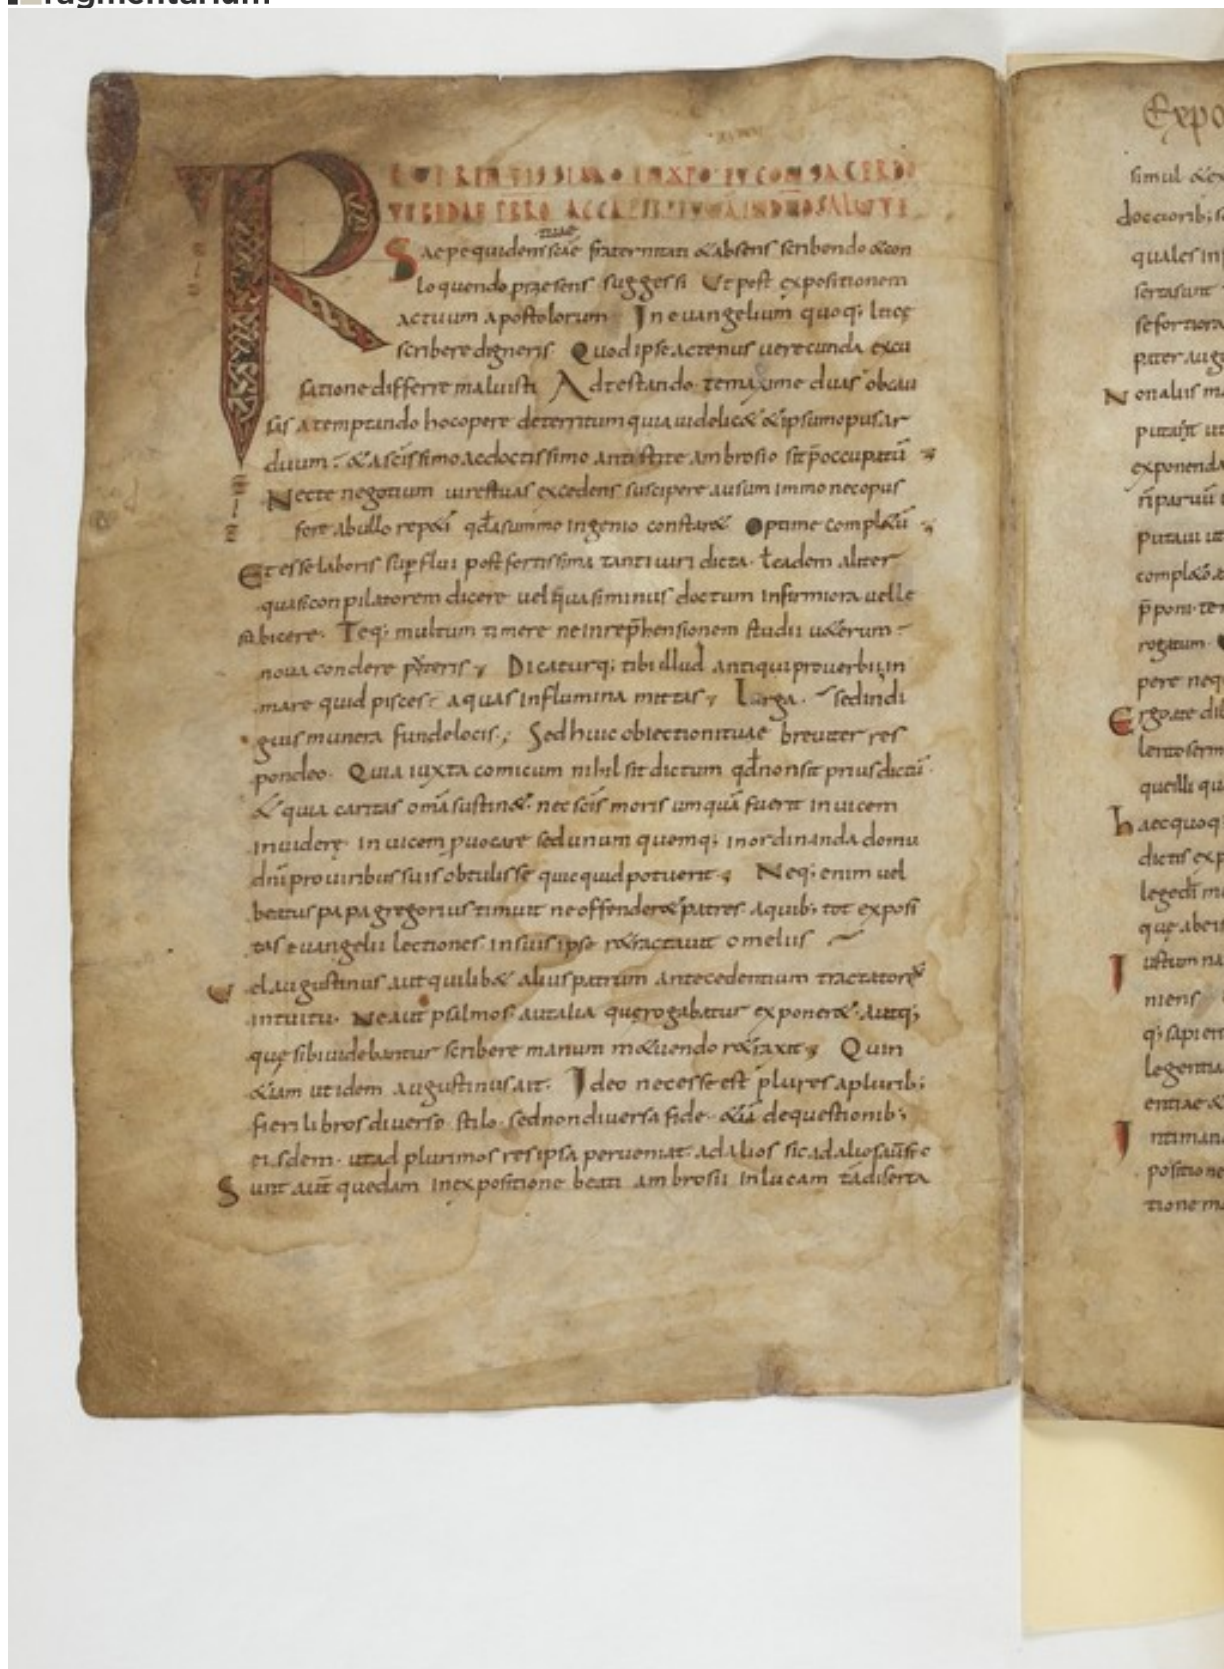 ragmentarium
REVERENTISSIMO INXPO ET CONSACERDO
TI BEDAE PRBO ACCA INDNO SALUTE
tuae
Saepe quidem scae fraternitati & absens scribendo & con
loquendo praesens suggessi Ut post expositionem
actuum apostolorum In euangelium quoq;
scribere digneris Quod ipse actenus uerecunda excu
satione differre maluisti Adtestando te maxime duas ob cau
sas a temptando hoc opere deterritum quia uidelic& & ipsum opus ar
duum & a scissimo ac doctissimo antistite ambrosio sit p̄occupatū
Nec te negotium uires tuas excedens suscipere ausum immo nec opus
fore ab ullo rep&i qd̄ a summo ingenio constar& Optime compl&ū
Et esse laboris sup̄flui post fertissima tanti uiri dicta eadem aliter
quasi conpilatorem dicere uel quasi minus doctum infirmiora uelle
subicere Teq; multum timere ne inrep̄hensionem studii u&erum
noua condere p&eris Dicaturq; tibi illud antiqui prouerbii in
mare quid pisces aquas in flumina mittas Larga sed indi
guis munera funde locis Sed huic obiectioni tuae breuiter res
pondeo Quia iuxta comicum nihil sit dictum qd̄ non sit prius dictū
& quia caritas omā sustin& nec scis moris umquā fuerit inuicem
inuidere inuicem puocare sed unum quemq; in ordinanda domu
dn̄i pro uiribus suis obtulisse quicquid potuerit Neq; enim uel
beatus papa gregorius timuit ne offender& patres a quib; tot exposi
tas euangelii lectiones in suis ipse r&ractauit omeliis
Uel augustinus aut quilib& alius patrum antecedentium tractatores
intuitu Ne aut psalmos aut alia que rogabatur exponer& autq;
que sibi uidebantur scribere manum m&uendo r&raxit Quin
&iam ut idem augustinus ait Ideo necesse est plures a plurib;
fieri libros diuerso stilo sed non diuersa fide &iā de questionib;
eisdem ut ad plurimos res ipsa perueniat ad alios sic ad alios aut̄ sic
Sunt aut̄ quedam in expositione beati ambrosii in lucam tā diserta
Expo
simul & ex
doctorib; s
quales in
se fortiora
pater aug
Non alius m
putaui ut
exponenda
putaui ut
rogatum
pere neq
Ergo a te di
lento serm
que illi qu
haec quoq;
dictis exp
que ab eis
iustum na
niens
q; sapien
legentia
entiae &
Intiman
positione
tione m